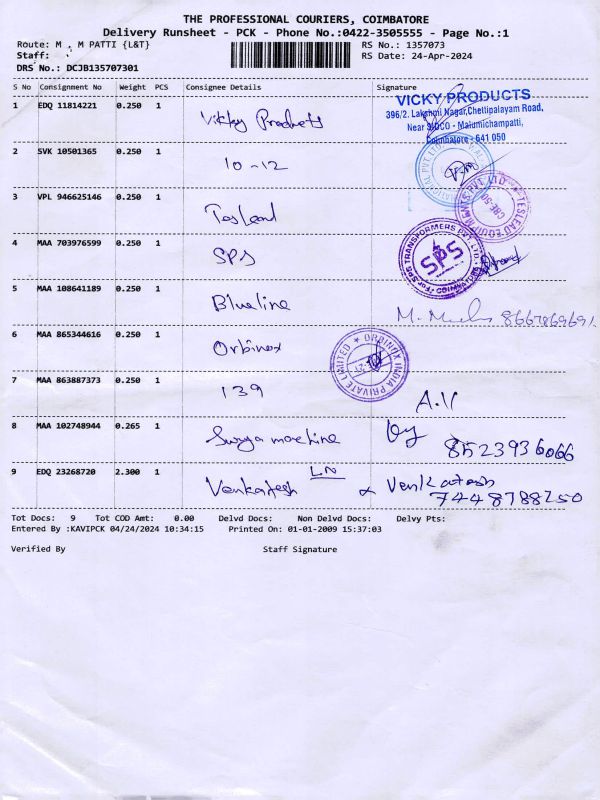 THE PROFESSIONAL COURIERS, COIMBATORE
Delivery Runsheet - PCK - Phone No.:0422-3505555 - Page No.:1
Route: M . M PATTI {L&T}
RS No.: 1357073
Staff:
RS Date: 24-Apr-2024
DRS No.: DCJB135707301
S No Consignment No Weight PCS Consignee Details Signature
1 EDQ 11814221 0.250 1 Vicky Products
VICKY PRODUCTS
396/2. Lakshmi Nagar,Chettipalayam Road,
Near SIDCO - Malumichampatti,
Coimbatore - 641 050
2 SVK 10501365 0.250 1 10-12
3 VPL 946625146 0.250 1 Teslead
TESLEAD EQUIPMENTS PVT. LTD.
CBE-50
4 MAA 703976599 0.250 1 SPS
For SPS TRANSFORMERS PVT. LTD.
SPS
5 MAA 108641189 0.250 1 Blueline
6 MAA 865344616 0.250 1 Orbinox
ORBINOX INDIA PRIVATE LIMITED
7 MAA 863887373 0.250 1 139 A.V
8 MAA 102748944 0.265 1 Surya machine 8523936066
9 EDQ 23268720 2.300 1 Venkatesh Venkatesh
7448788250
Tot Docs: 9 Tot COD Amt: 0.00 Delvd Docs: Non Delvd Docs: Delvy Pts:
Entered By :KAVIPCK 04/24/2024 10:34:15 Printed On: 01-01-2009 15:37:03
Verified By Staff Signature